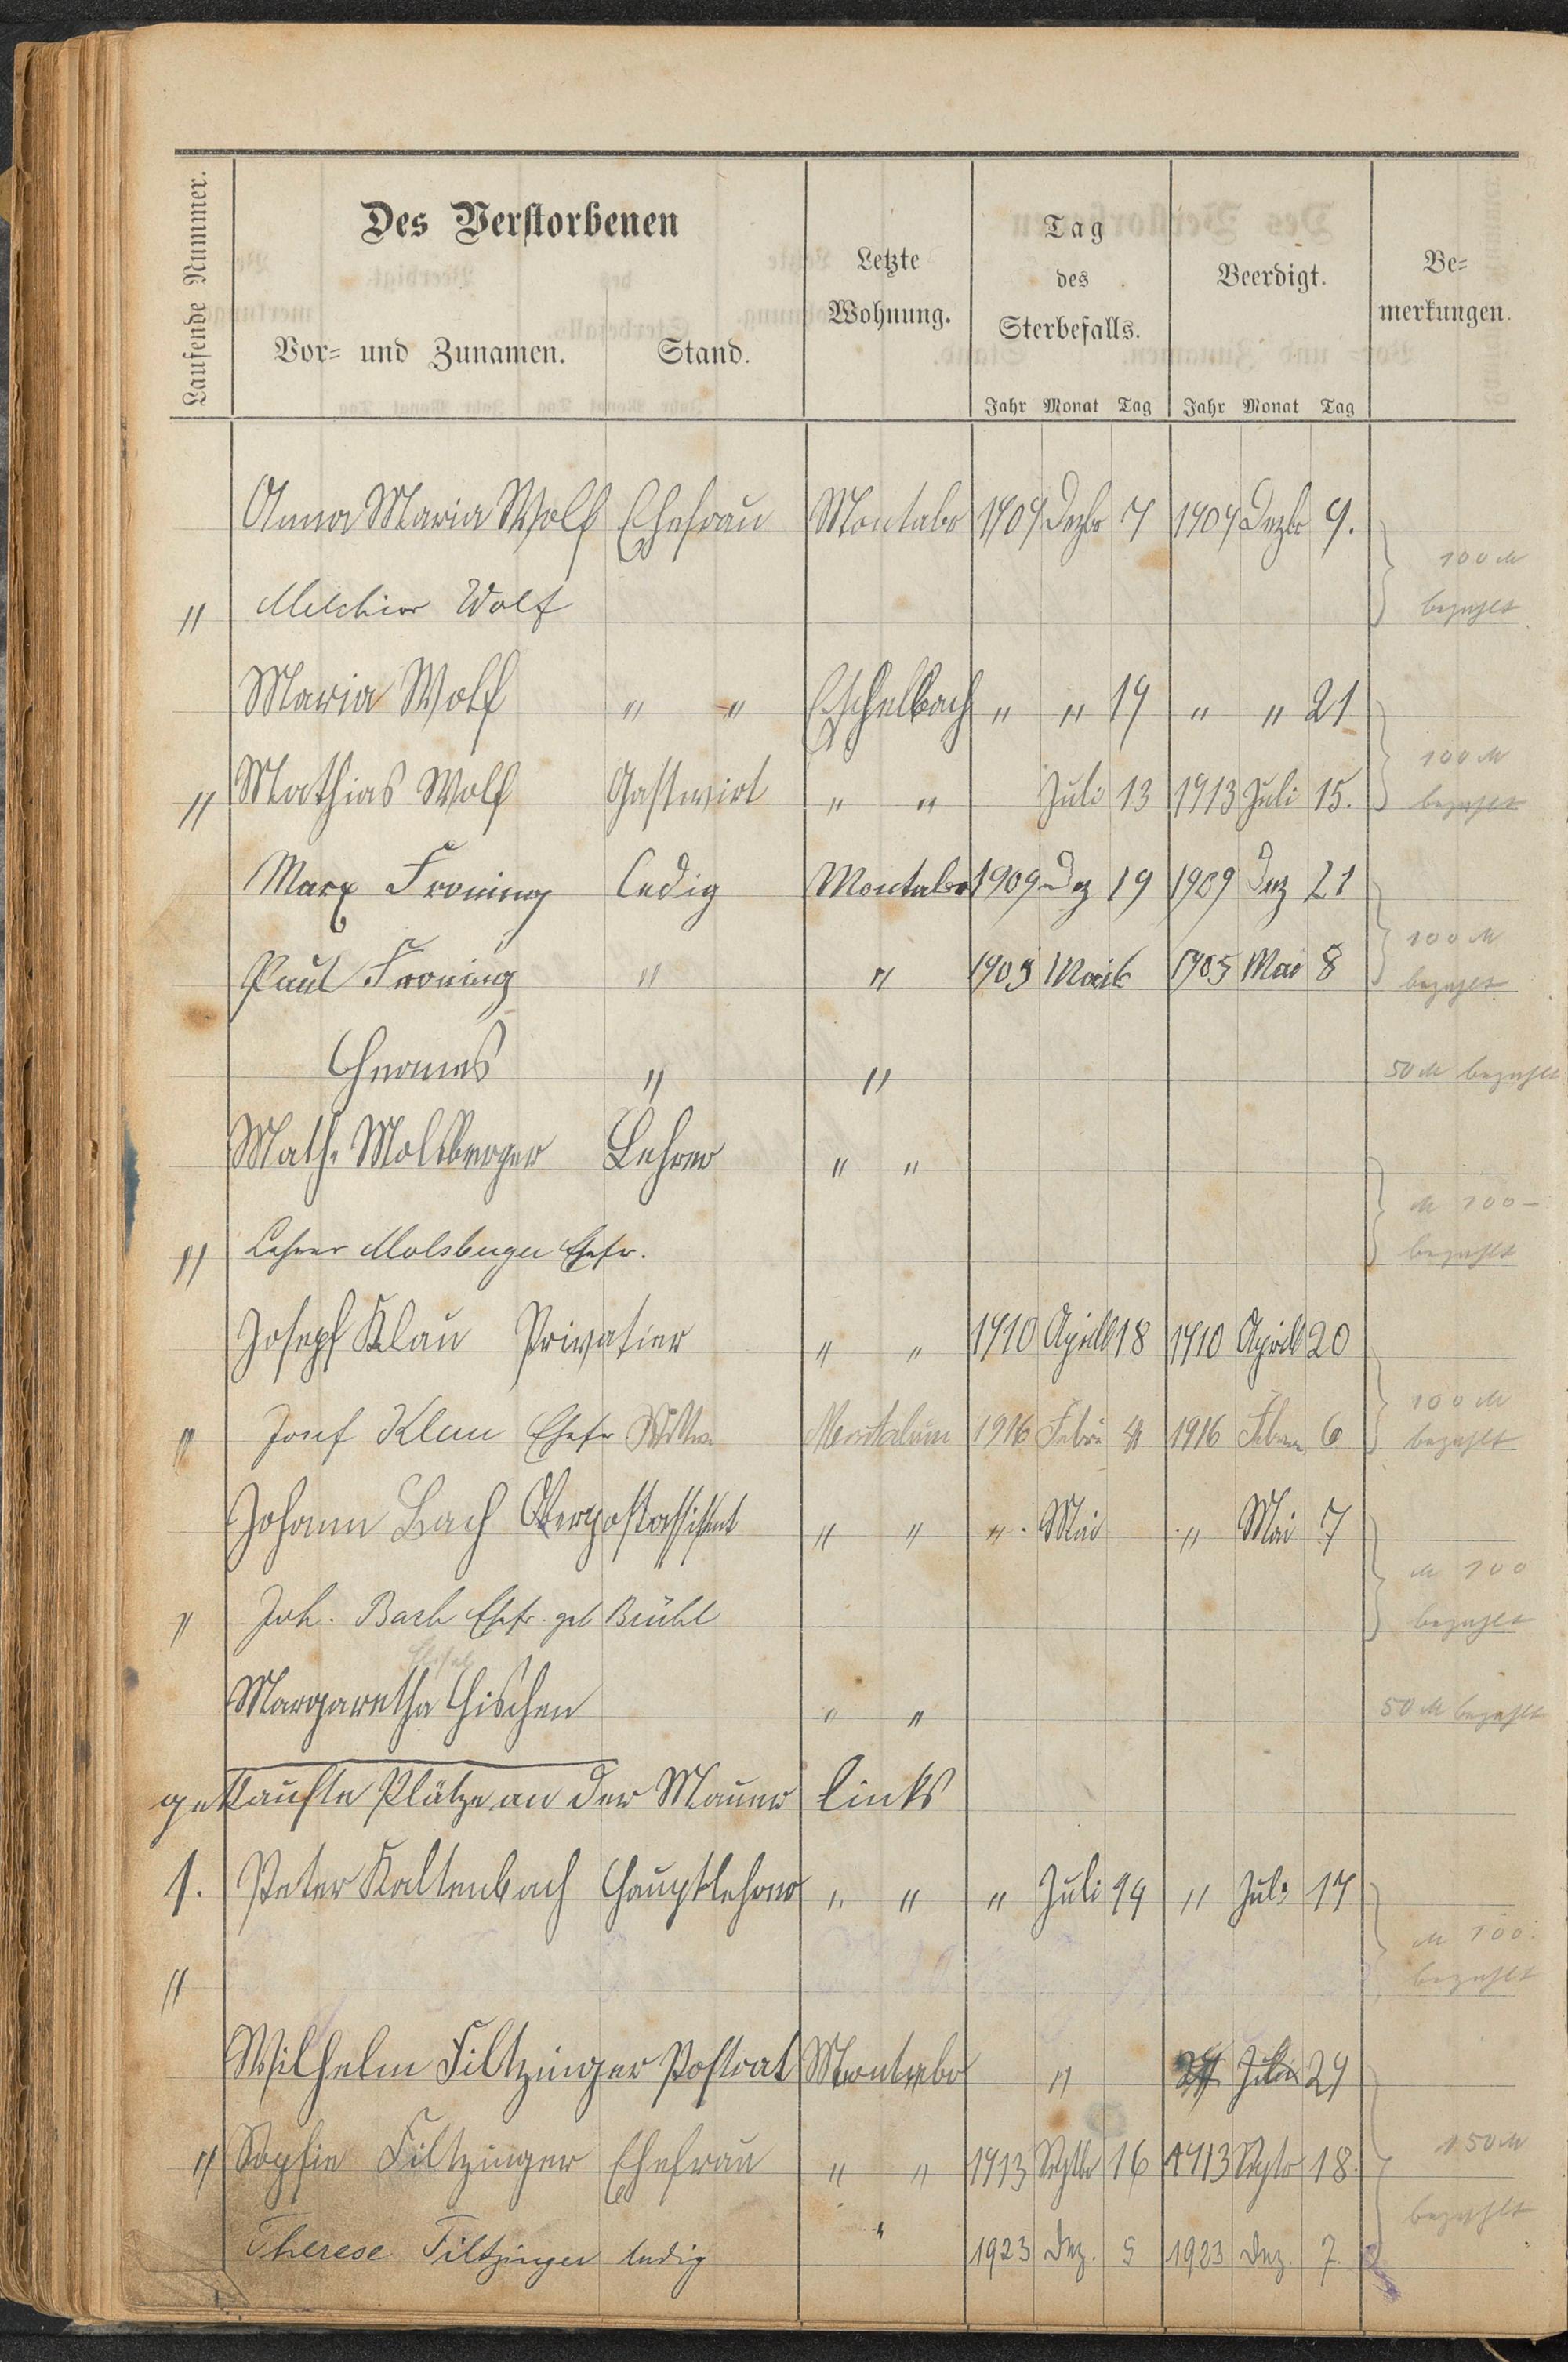 Laufende Nummer.
Des Verstorbenen
Vor- und Zunamen. Stand.
Letzte
Wohnung.
Tag
des
Sterbefalls.
Beerdigt.
Be-
merkungen.
Jahr Monat Tag Jahr Monat Tag
Anna Maria Wolf Ehefrau Montabr 1909 Dezbr 7 1909 Dezbr 9.
100 M
" Melchior Wolf bezahlt
Maria Wolf " " Eschelbach " " 19 " " 21
100 M
" Mathias Wolf Gastwirt " " Juli 13 1913 Juli 15. bezahlt
Marx Froning ledig Montabr 1909 Dez 19 1909 Dez 21
100 M
Paul Froning " " 1905 Mai 6 1905 Mai 8 bezahlt
Hermes " " 50 M bezahlt
Math. Molsberger Lehrer " "
M 100-
" Lehrer Molsberger Ehefr. bezahlt
Joseph Klau Privatier " " 1910 Aprill 18 1910 Aprill 20
100 M
" Josef Klau Ehefr Witwe Montabaur 1916 Febru 4 1916 Februar 6 bezahlt
Johann Bach Oberpostassistent " " " Mai " Mai 7
M 100
" Joh. Bach Ehfr. geb Brühl bezahlt
Margaretha Hischen " " 50 M bezahlt
gekaufte Plätze an der Mauer links
1. Peter Kaltenbach Hauptlehrer " " " Juli 14 " Juli 17
M 100.
" bezahlt
Wilhelm Filtzinger Postrat Montabr " 29
" Sophie Filtzinger Ehefrau " " 1913 Septbr 16 1913 Septbr 18.
150 M
bezahlt
Therese Filtzinger ledig " 1923 Dez. 5 1923 Dez. 7.